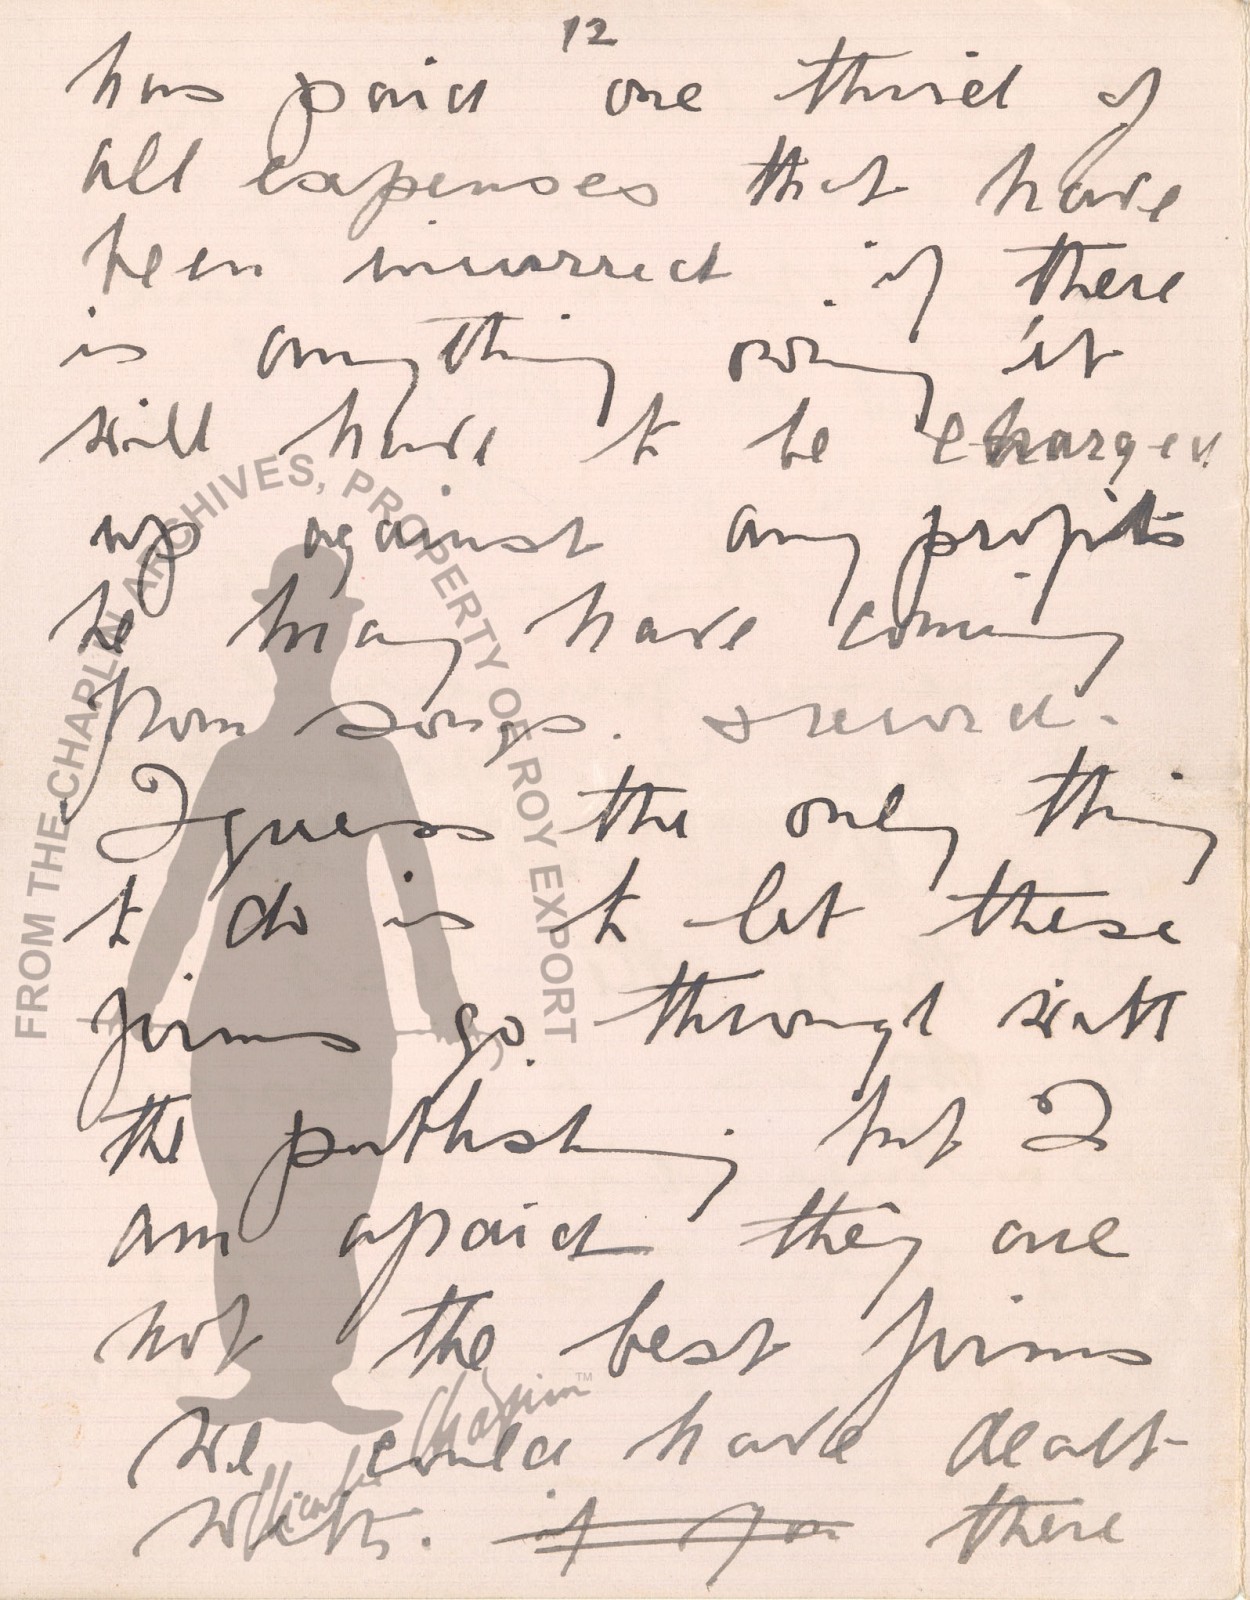 12
has paid one third of
all expenses that have
been incurred. if there
is anything owing it
will have to be charged
up against any profits
he may have coming
from songs. & record.
I guess the only thing
to do is to let these
firms go through with
the publishing but I
am afraid they are
not the best firms
we could have dealt
with. if you there
FROM THE CHAPLIN ARCHIVES, PROPERTY OF ROY EXPORT
Charlie Chaplin™